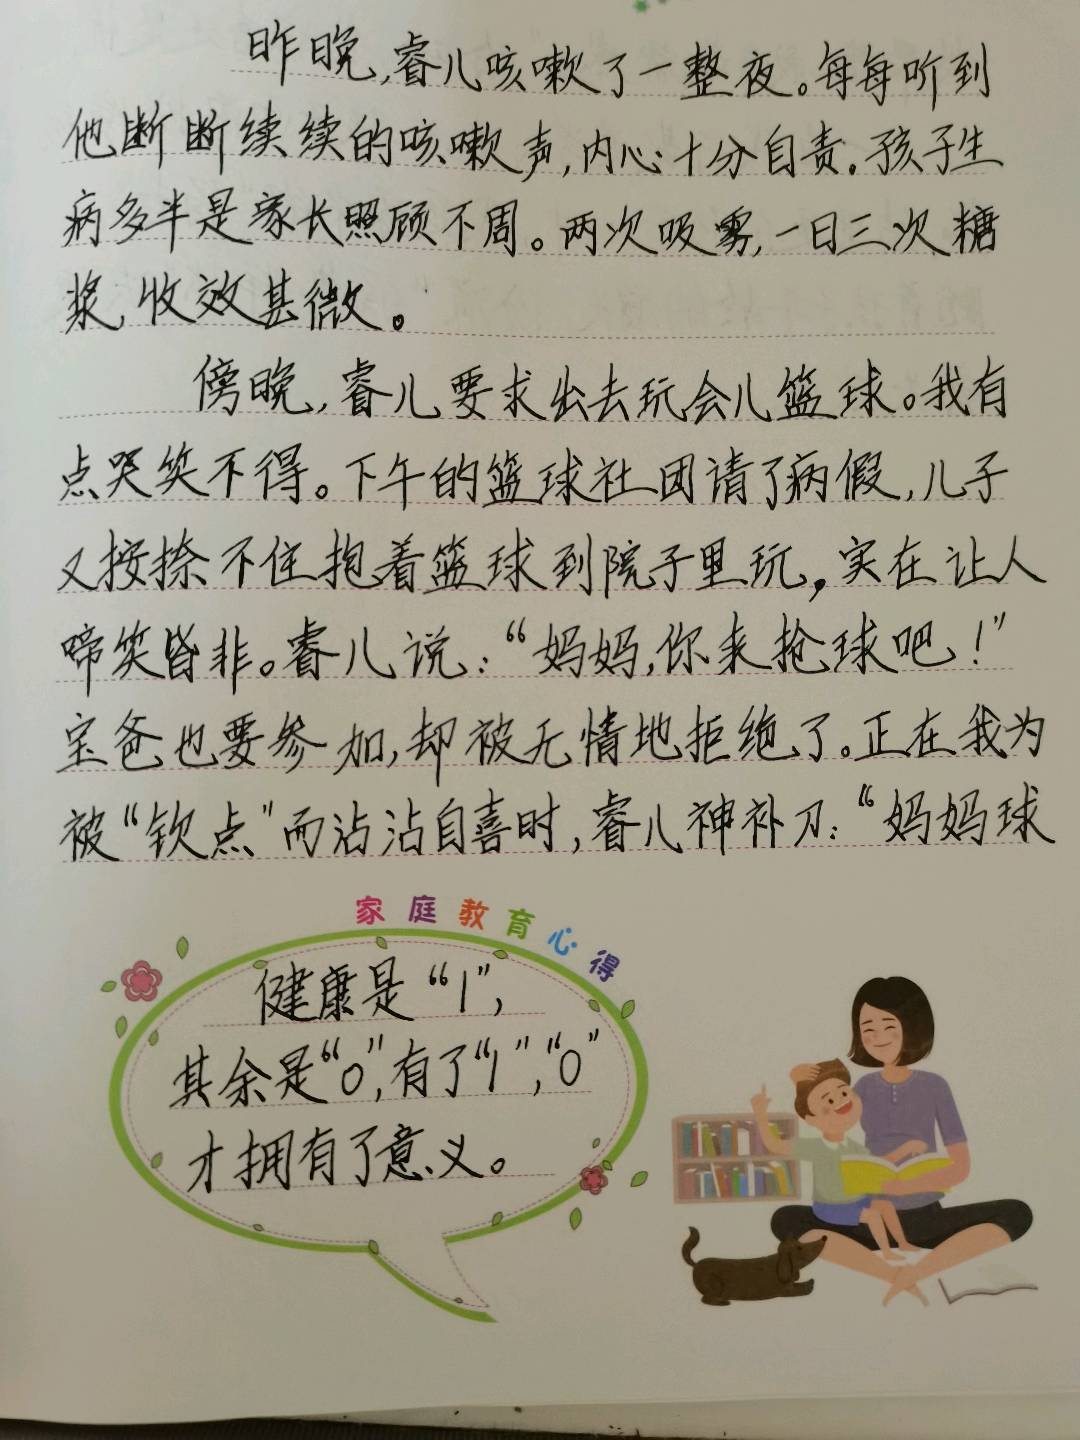 昨晚,睿儿咳嗽了一整夜。每每听到
他断断续续的咳嗽声,内心十分自责。孩子生
病多半是家长照顾不周。两次吸雾,一日三次糖
浆,收效甚微。
傍晚,睿儿要求出去玩会儿篮球。我有
点哭笑不得。下午的篮球社团请了病假,儿子
又按捺不住抱着篮球到院子里玩,实在让人
啼笑皆非。睿儿说:“妈妈,你来抢球吧!”
宝爸也要参加,却被无情地拒绝了。正在我为
被“钦点”而沾沾自喜时,睿儿神补刀:“妈妈球
家庭教育心得
健康是“1”,
其余是“0”,有了“1”,“0”
才拥有了意义。